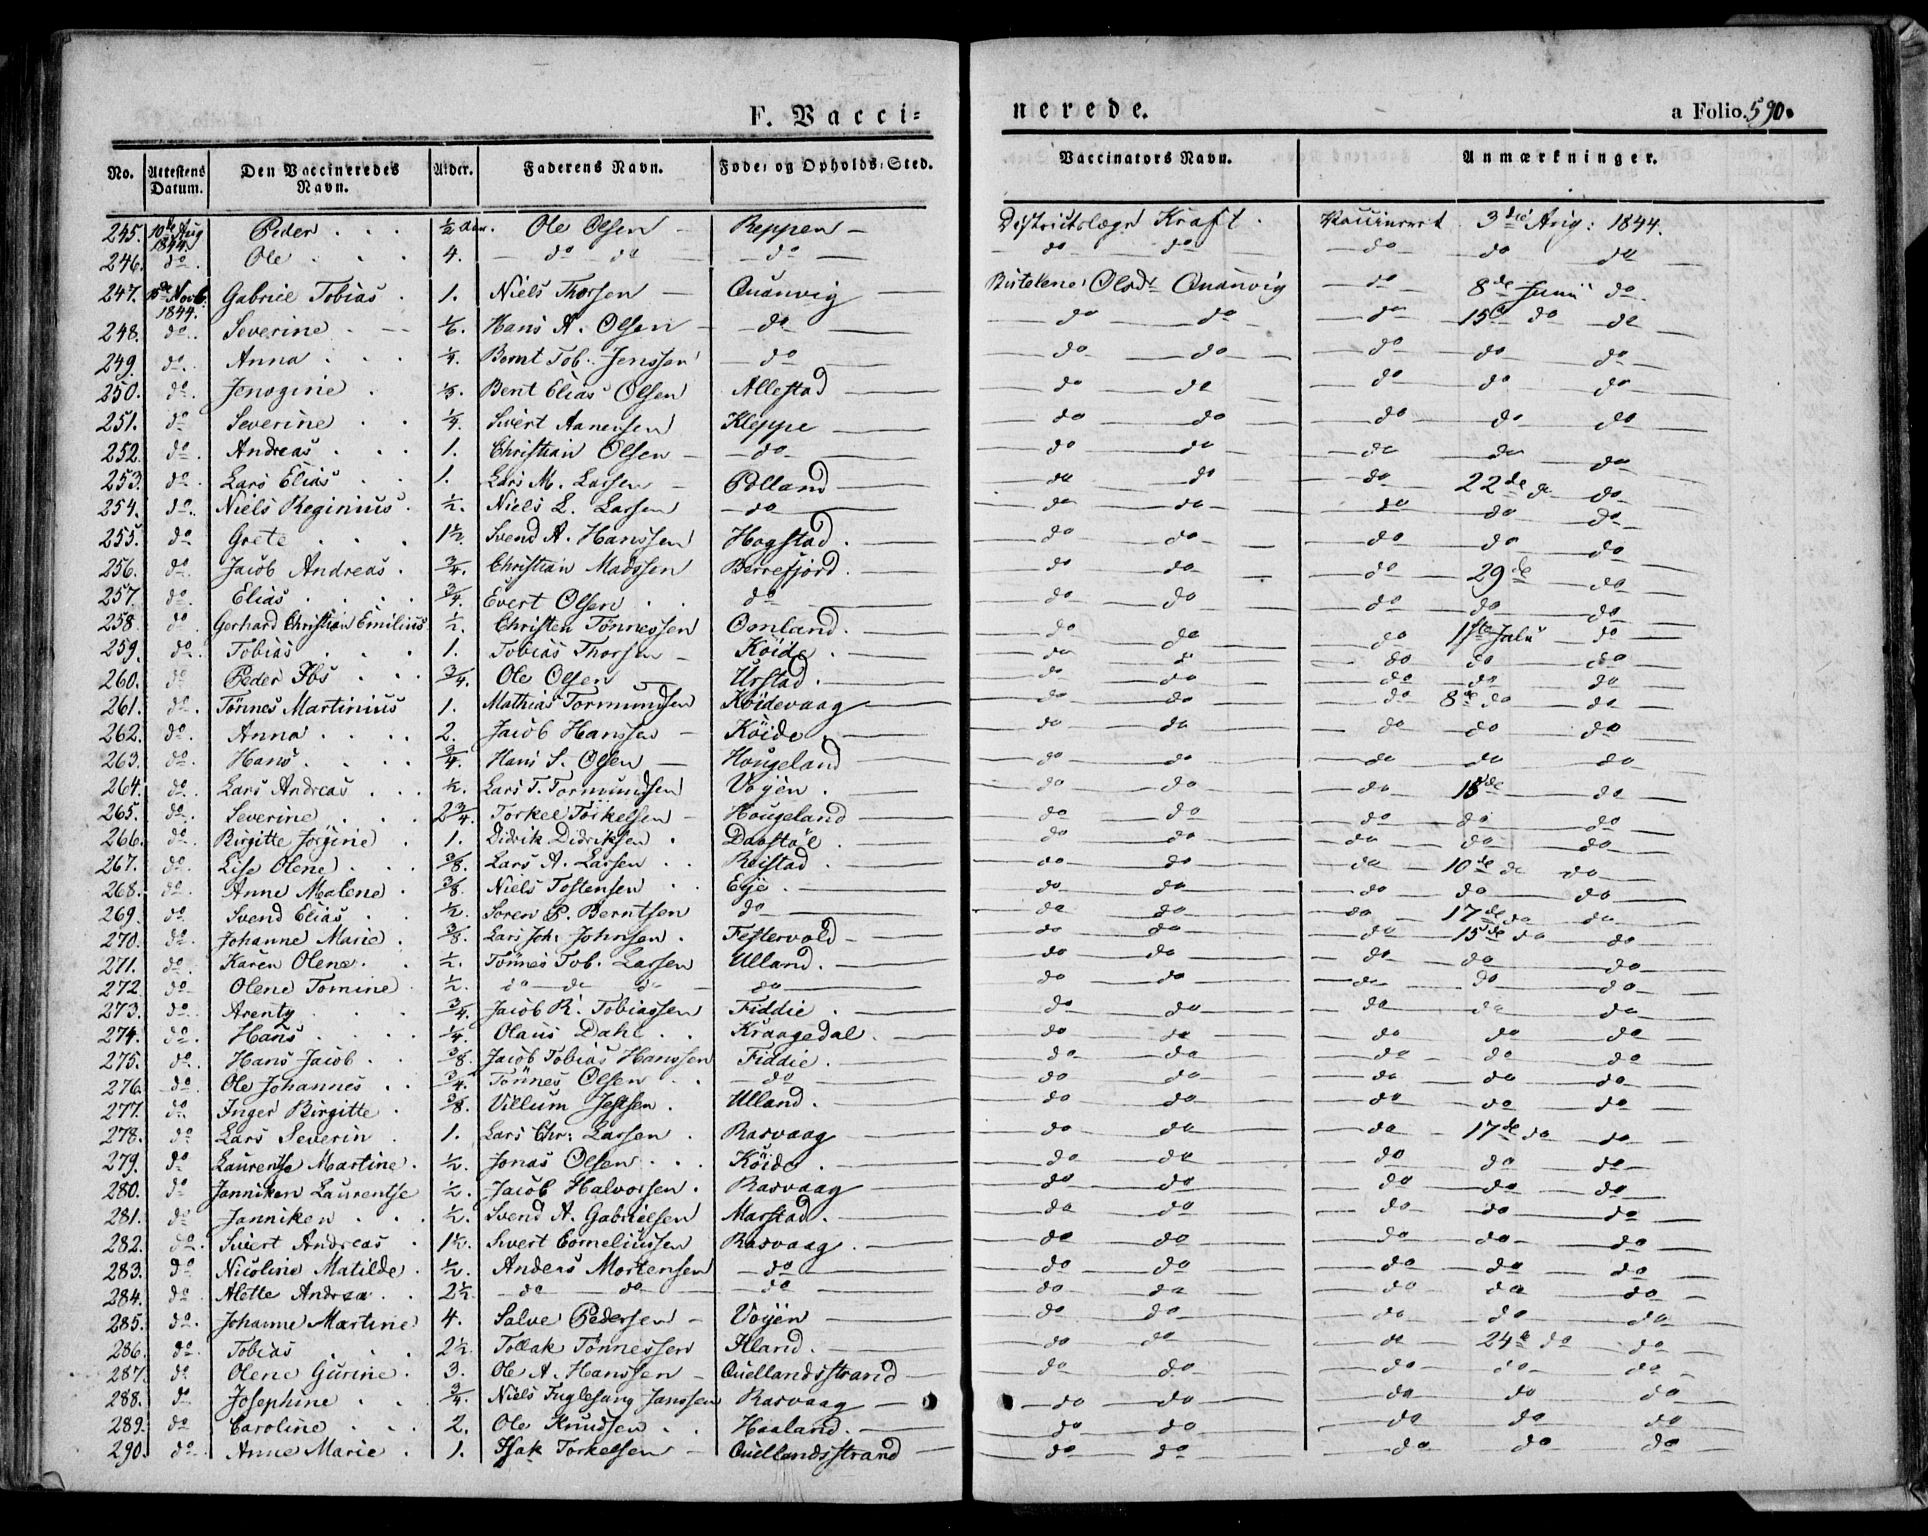 F. Vacci- nerede. a Folio. 590.
No. Attestens Datum. Den Vaccineredes Navn. Alder. Faderens Navn. Føde- og Opholds-Sted. Vaccinators Navn. Anmærkninger.
245. 10de Aug 1844. Peder ½ Aar. Ole Olsen Reppen Districtslæge Kraft. Vaccineret 3die Aug: 1844.
246. do. Ole 4. do do do do do do do do
247. 15de Novb. 1844. Gabriel Tobias 1. Niels Thorsen Quanvig Olsdr Quanvig do 8de Junii do.
248. do. Severine ⅙. Hans A. Olsen do do do do 15de do do
249. do. Anna ¼. Bernt Tob. Jenssen do do do do do do
250. do. Jensgine ⅓. Bent Elias Olsen Allestad do do do do do
251. do Severine ¼. Sivert Aanensen Kleppe do do do do do
252. do. Andreas 1. Christian Olsen do do do do do do
253. do. Lars Elias 1. Lars M. Larsen Polland do do do 22de do do
254. do. Niels Reginius ½. Niels L. Larsen do do do do do do
255. do Grete 1½. Svend A. Hanssen Hogstad. do do do do do
256. do. Jacob Andreas ¾. Christian Madssen Berrefjord. do do do 29de do
257. do. Elias ¾. Evert Olsen do do do do do do
258. do Gerhard Christian Emilius ½. Christen Tönnessen Omland. do do do 1ste Julii do
259. do. Tobias 1. Tobias Thorsen Köide. do do do do do
260. do Peder Ibs ¾. Ole Olsen Urstad. do do do do do
261. do. Tönnes Martinius 1. Mathias Tormundsen Köidevaag do do do 8de do do
262. do. Anna 2. Jacob Hanssen Köide do do do do do
263. do. Hans ¾. Hans S. Olsen Hougeland do do do do do
264. do. Lars Andreas ½. Lars T. Tormundsen Vöjen. do do do 15de do
265. do. Severine 2¾. Torkel Torkelsen Hougeland do do do do do
266. do. Birgitte Jörgine 1. Didrik Didriksen Davstöl do do do do do
267. do. Lise Olene ⅜. Lars A. Larsen Roistad. do do do 10de do do
268. do. Anne Malene ⅜. Niels Tostensen Eye. do do do do do
269. do Svend Elias ½. Soren P. Berntsen do do do do 17de do do
270. do. Johanne Marie ⅜. Lars Joh: Johnsen Festervold do do do 15de do do
271. do. Karen Olene ½. Tönnes Tob. Larsen Ulland. do do do do do
272. do Olene Tomine ½. do do do do do do do do do
273. do. Arenty ¾. Jacob R. Tobiassen Fiddie do do do do do
274. do. Hans ¼. Olaus Dahl Kraagedal. do do do do do
275. do. Hans Jacob ⅜. Jacob Tobias Hanssen Fiddie. do do do do do
276. do. Ole Johannes ¾. Tönnes Olsen do do do do do do
277. do. Inger Birgitte ⅜. Villum Jessen. Ulland. do do do do do
278. do Lars Severin 1. Lars Chr: Larsen Rasvaag do do do 17de do do
279. do Laurentse Martine ½. Jonas Olsen Köide. do do do do do
280. do Janniken Laurentse ½. Jacob Halvorsen. Rasvaag do do do do do
281. do. Janniken ½. Svend A. Gabrielsen Marstad. do do do do do
282. do. Sivert Andreas 1½. Sivert Corneliussen Rasvaag. do do do do do
283. do. Nicoline Matilde ½. Anders Mortensen do do do do do do
284. do. Alette Andrea 2½. do do do do do do do do
285. do. Johanne Martine 4. Salve Pedersen Vöjen do do do do do
286. do. Tobias 2½. Tollak Tönnessen Iland. do do do 24de do do
287. do. Olene Gurine 3. Ole A. Hanssen Quellandsstrand do do do do do
288. do Josephine ¾. Niels Fuglesang Janssen Rasvaag do do do do do
289. do Caroline 2. Ole Knudsen Haaland. do do do do do
290. do. Anne Marie 1. Isak Torkelsen Quellandsstrand do do do do do